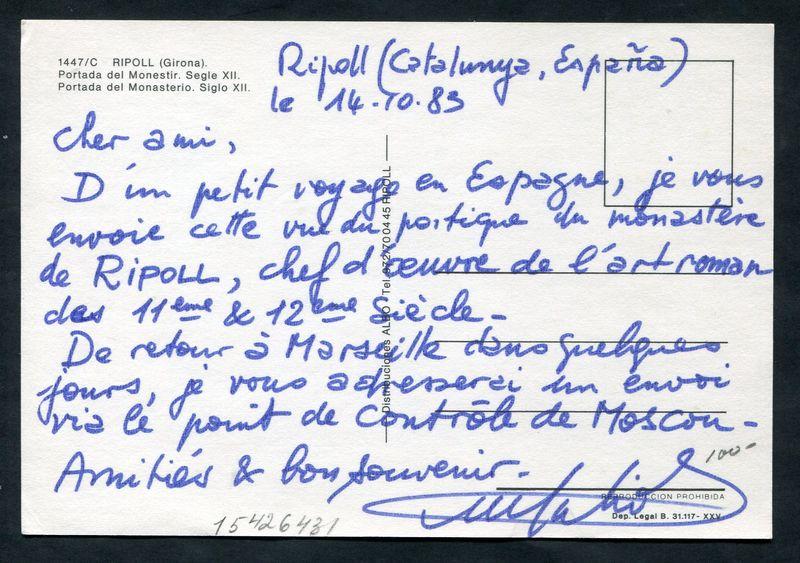 1447/C RIPOLL (Girona).
Portada del Monestir. Segle XII.
Portada del Monasterio. Siglo XII.
Ripoll (Catalunya, España)
le 14.10.83
Cher ami,
D'un petit voyage en Espagne, je vous
envoie cette vue du portique du monastère
de RIPOLL, chef d'œuvre de l'art roman
des 11eme & 12eme Siècle-
De retour à Marseille dans quelques
jours, je vous adresserai un envoi
via le point de Contrôle de Moscou-
Amitiés & bon souvenir-
100-
Distribuciones ALBO Tel. 972/700445 RIPOLL
REPRODUCCION PROHIBIDA
Dep. Legal B. 31.117- XXV
15426431